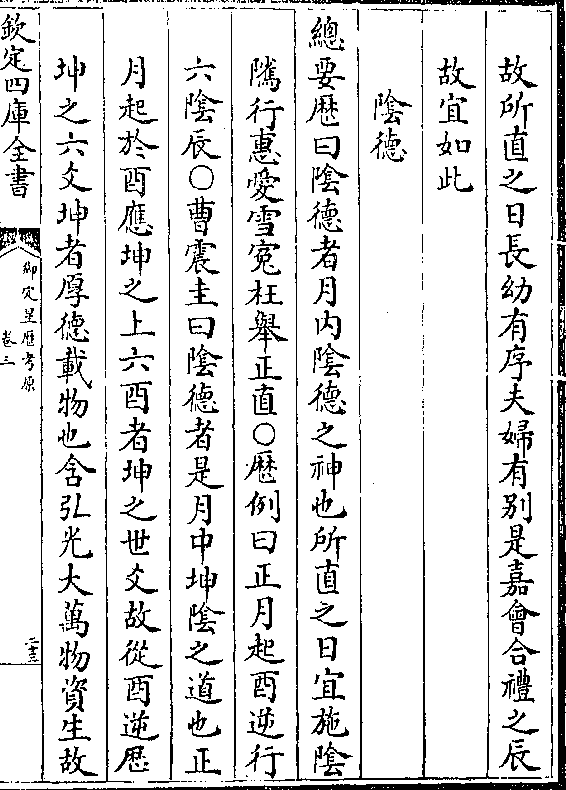 故所直之日長幼有序夫婦有别是嘉會合禮之辰
故宜如此
陰德
總要厯曰陰德者月内陰德之神也所直之日宜施陰
隲行惠愛雪寃枉舉正直○厯例曰正月起酉逆行
六陰辰○曹震圭曰陰德者是月中坤陰之道也正
月起於酉應坤之上六酉者坤之世爻故從酉逆厯
坤之六爻坤者厚德載物也含弘光大萬物資生故
欽定四庫全書
御定星厯考原
卷三
二十三